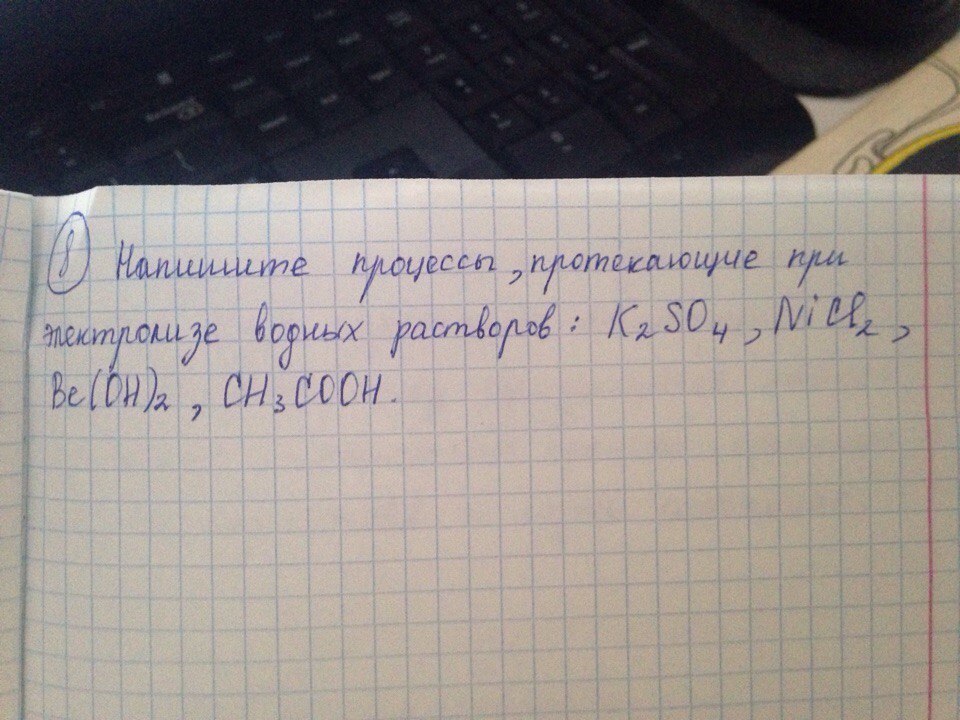 8) Напишите процессы, протекающие при
электролизе водных растворов: K₂SO₄, NiCl₂,
Be(OH)₂, CH₃COOH.